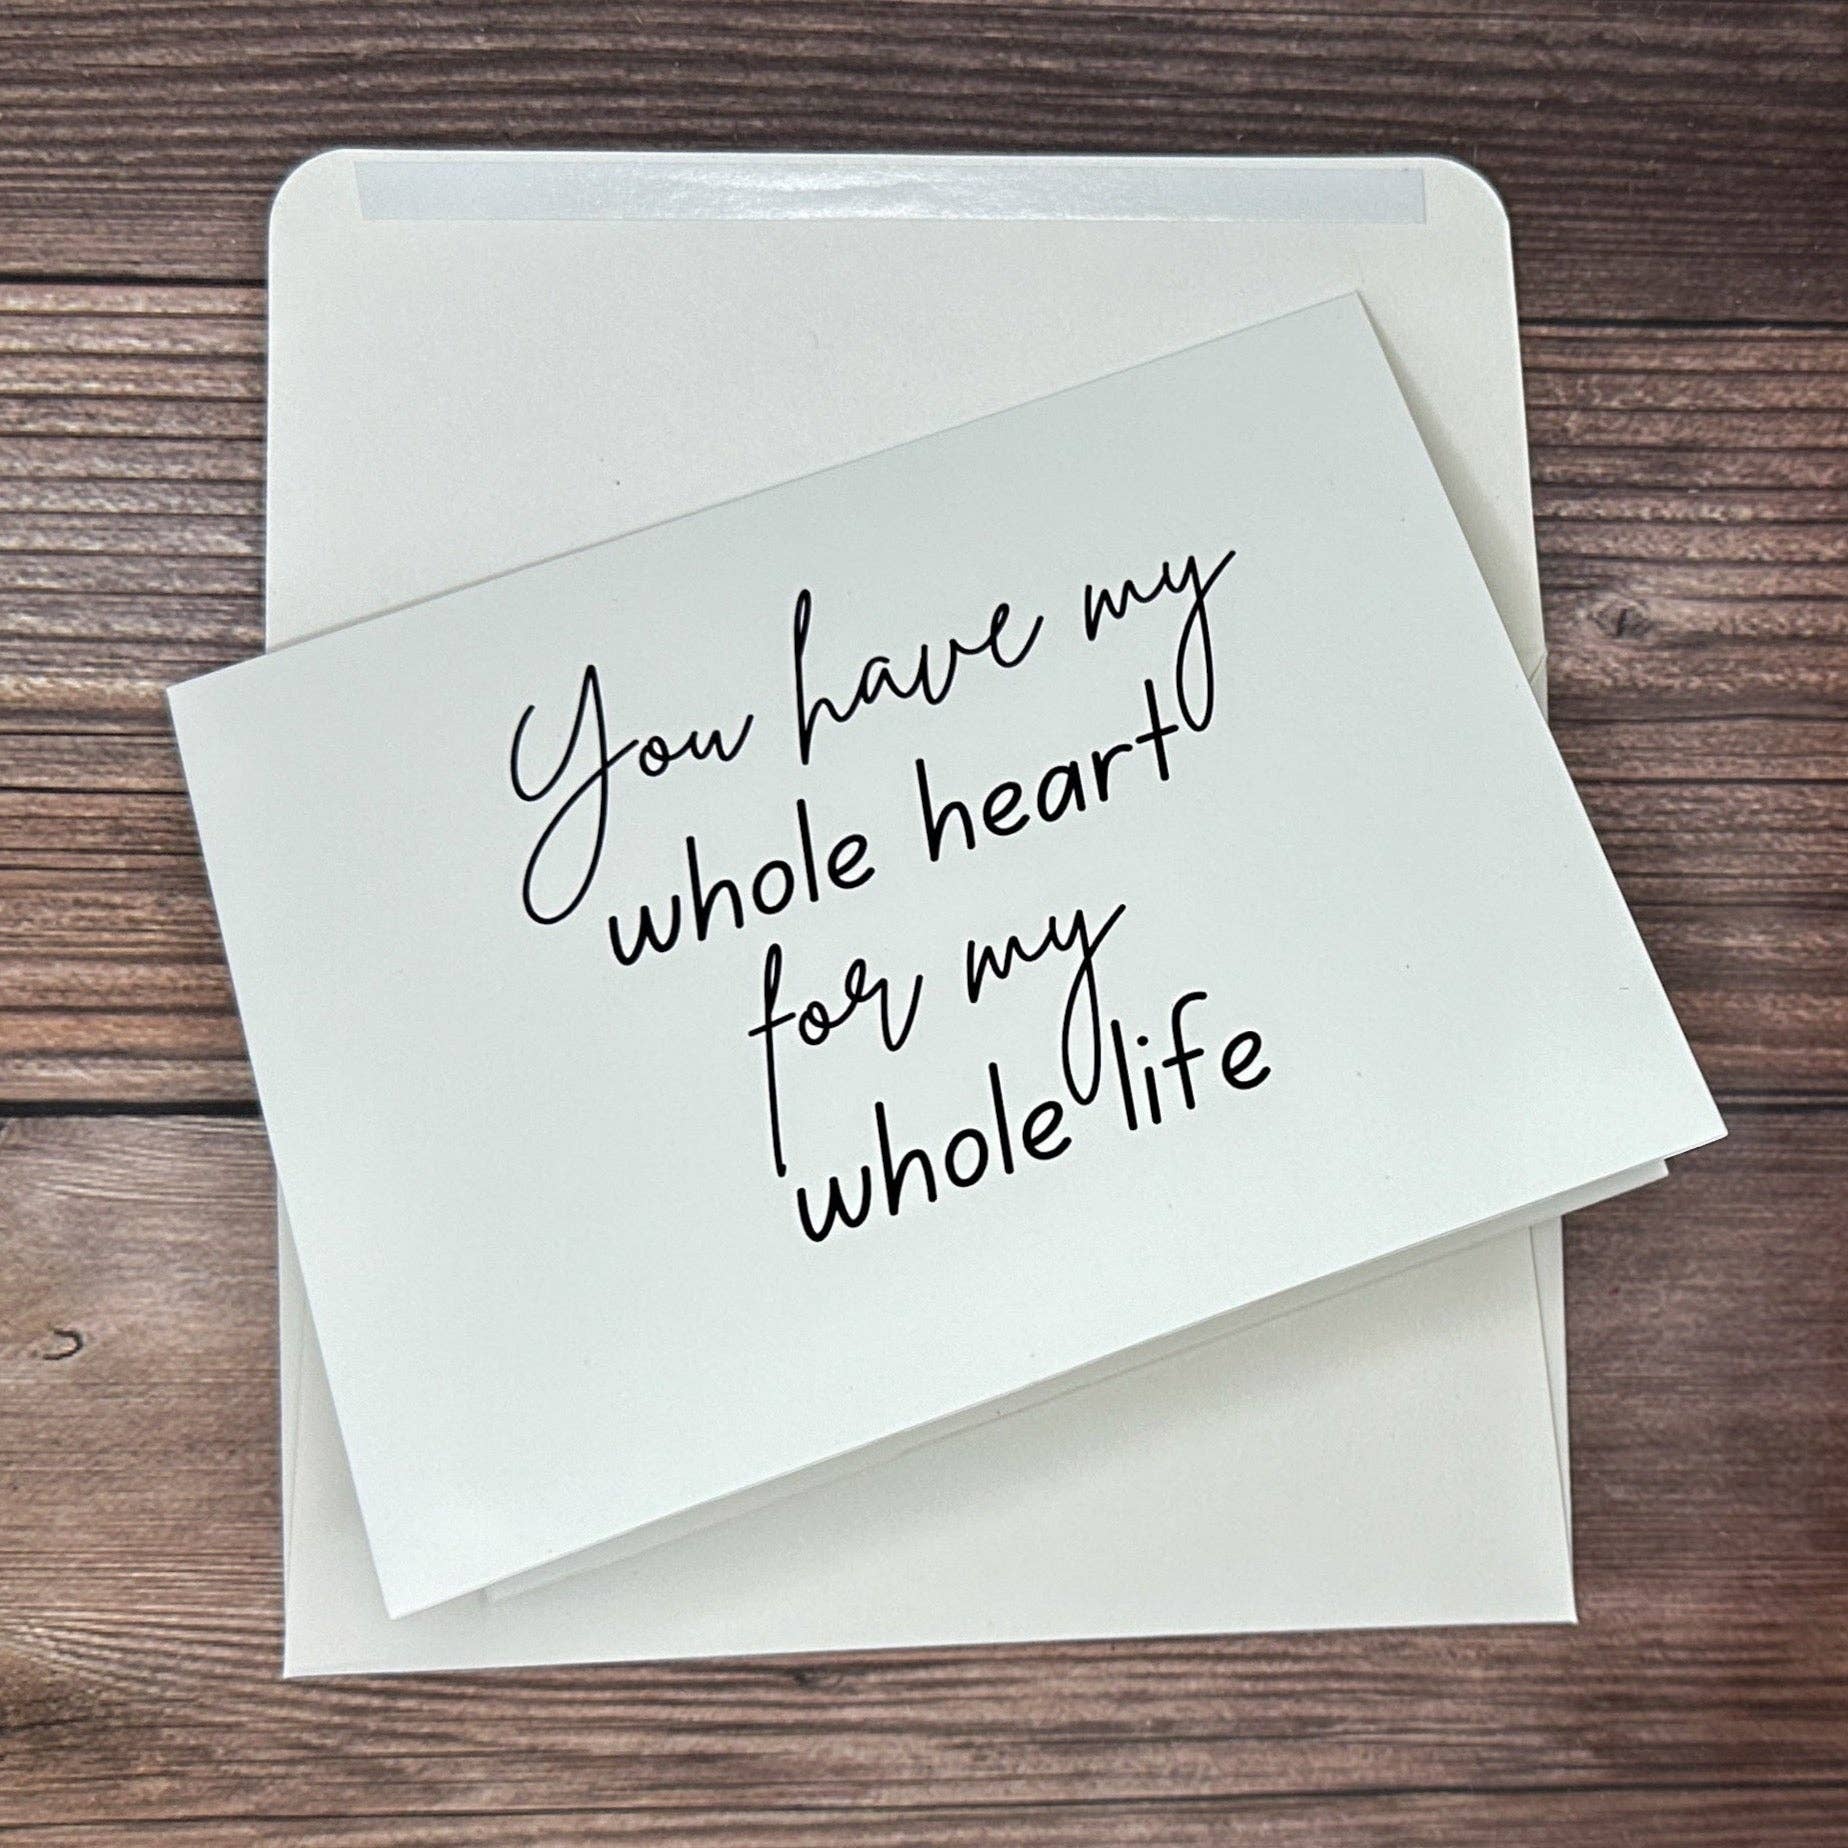 You have my
whole heart
for my
whole life